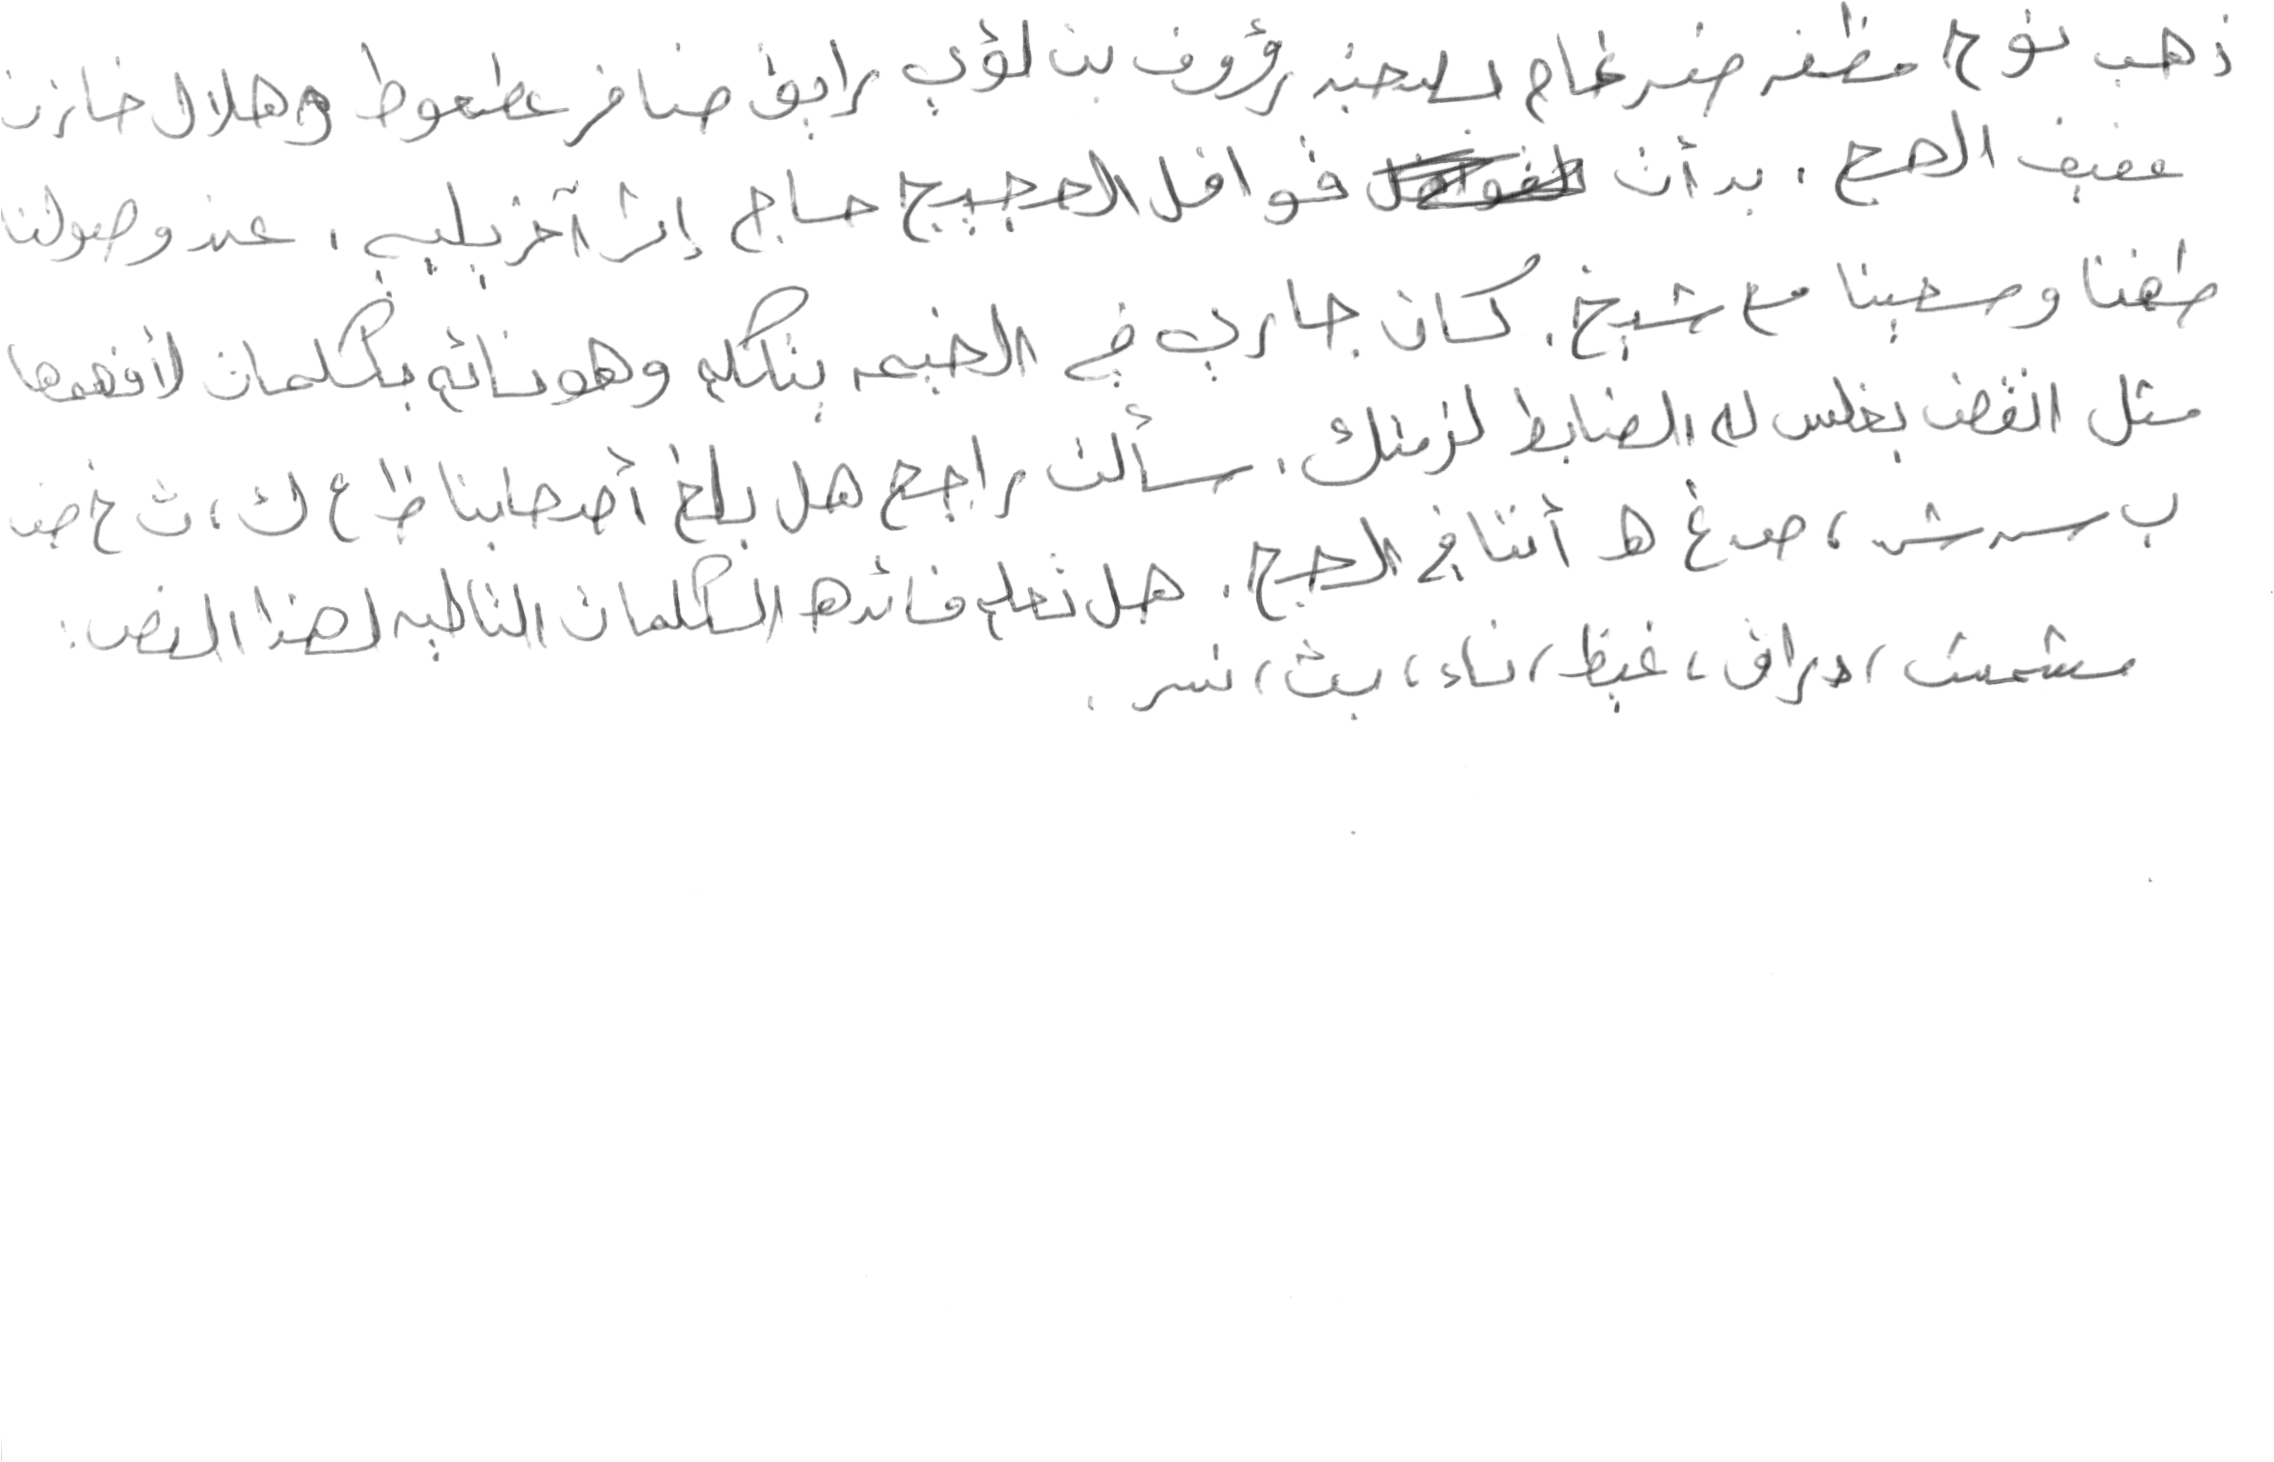 ذهب نوح مظفر ضرغام بصحبة رؤوف بن لؤي رايق ضافر عطعوط وهلال خازن
عفيف الحج . بدأت قوافل الحجيج حاج إثر آخر يلبي . عند وصولنا
طفنا وسعينا مع شيخ . كان جاري في الخيمه يتكلم وهو نائم بكلمات لا أفهمها
مثل انقض بغلس له الضابط لزمنك . سألت راجح هل بلغ أصحابنا ظ ع ك ، ث خ ض
ب س ش ، ص غ ه أتتا في الحج . هل تعلم فائده الكلمات التاليه لهذا النص :
مشمش ، دراق ، غيظ ، ناء ، بث ، نسر .